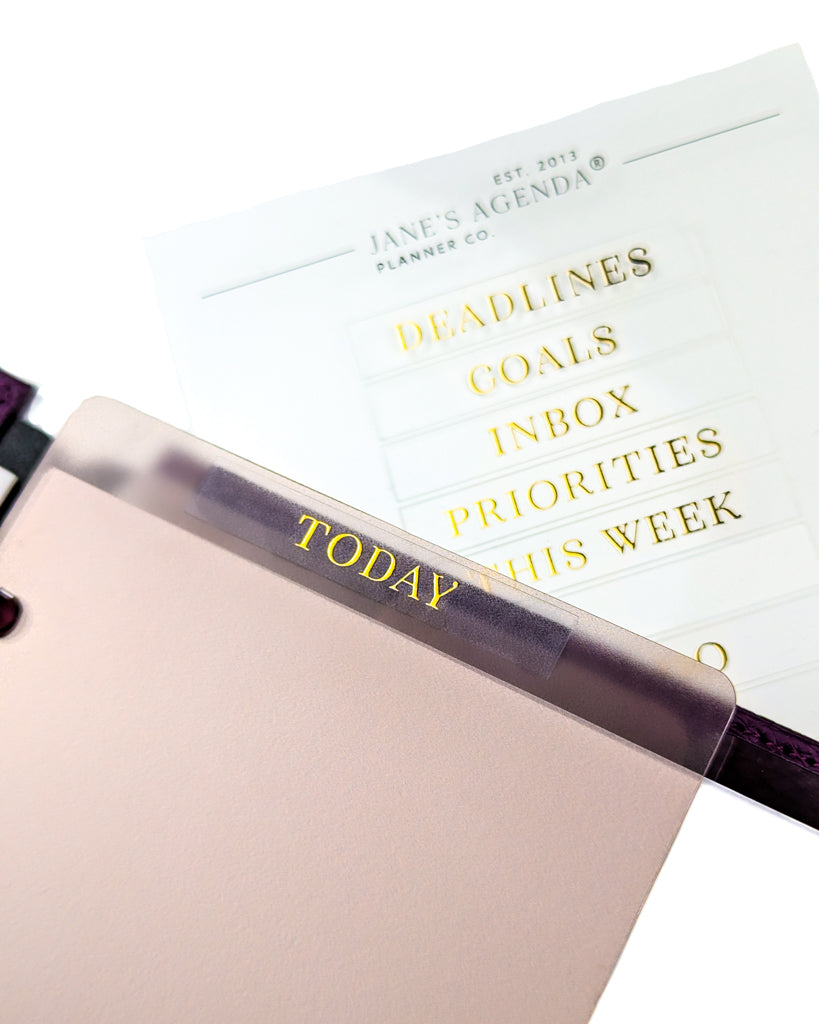 EST. 2013
JANE'S AGENDA®
PLANNER CO.
DEADLINES
GOALS
INBOX
PRIORITIES
THIS WEEK
O
TODAY